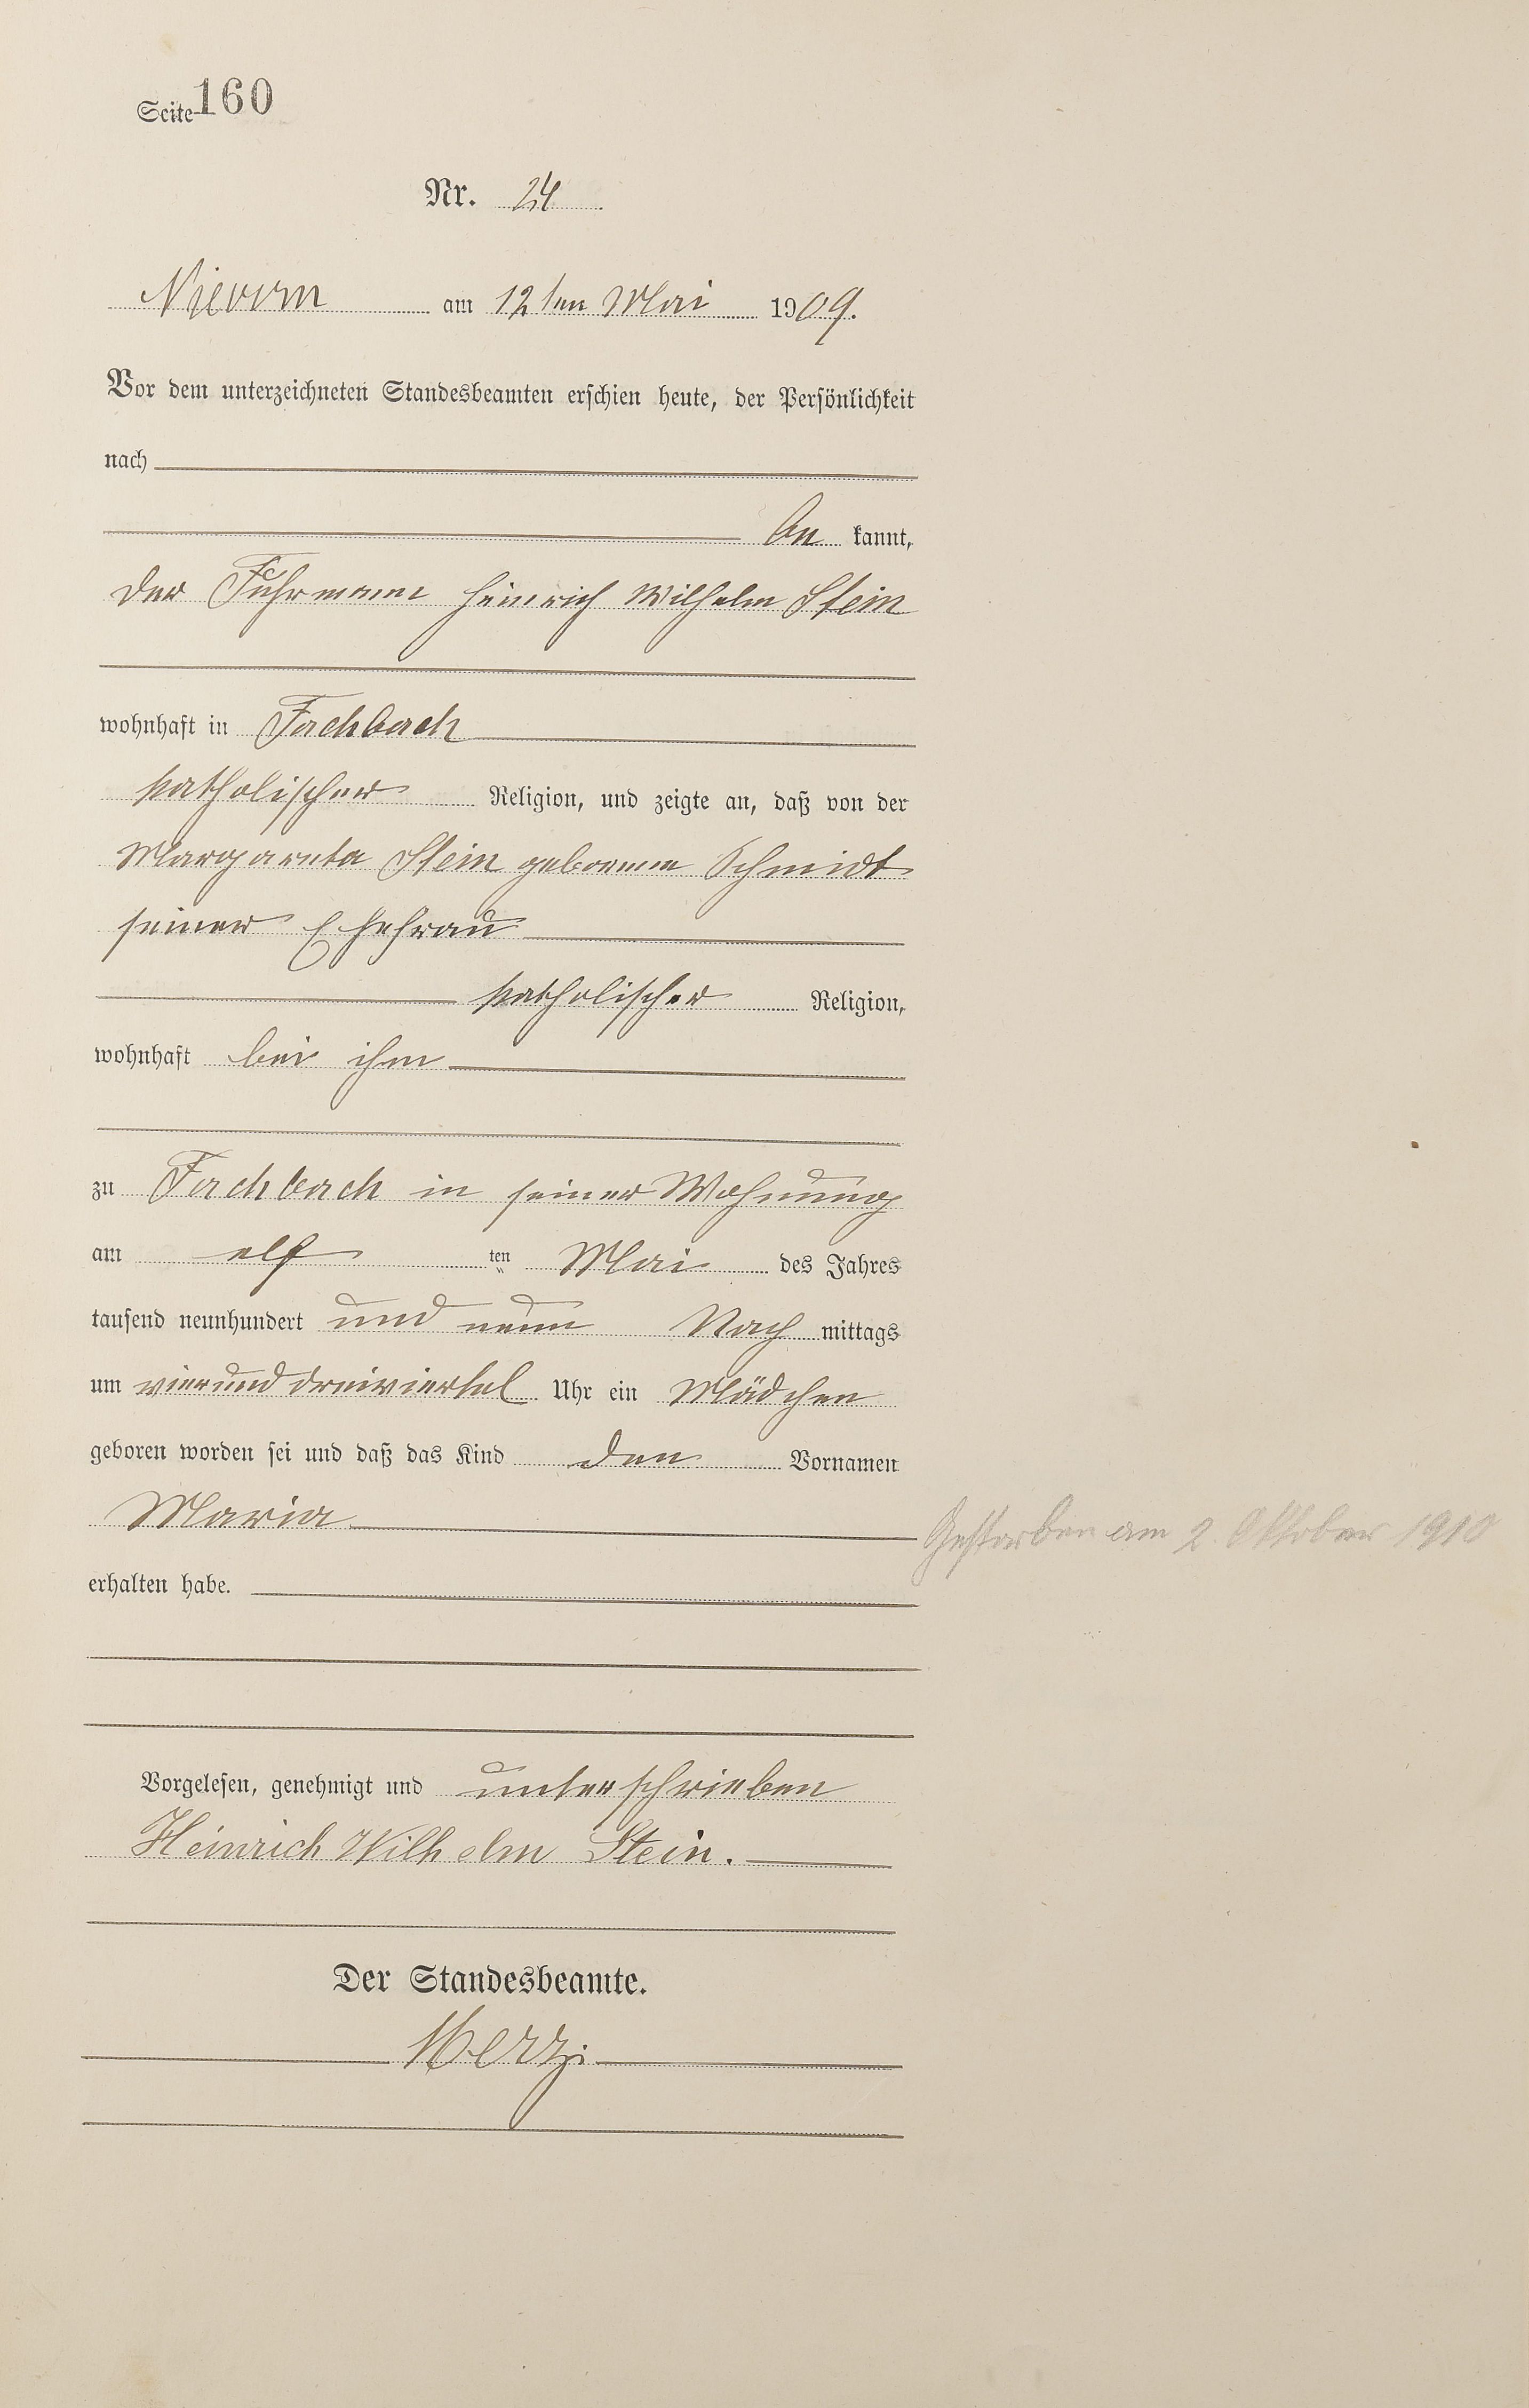 Seite 160
Nr. 24
Nievern am 12ten Mai 1909.
Vor dem unterzeichneten Standesbeamten erschien heute, der Persönlichkeit
nach
be kannt,
der Fuhrmann Heinrich Wilhelm Stein
wohnhaft in Fachbach
katholischer Religion, und zeigte an, daß von der
Margareta Stein geborenen Schmidt
seiner Ehefrau
katholischer Religion,
wohnhaft bei ihm
zu Fachbach in seiner Wohnung
am elf ten Mai des Jahres
tausend neunhundert und neun Nach mittags
um vierunddreiviertel Uhr ein Mädchen
geboren worden sei und daß das Kind den Vornamen
Maria
Gestorben am 2. Oktober 1910
erhalten habe.
Vorgelesen, genehmigt und unterschrieben
Heinrich Wilhelm Stein.
Der Standesbeamte.